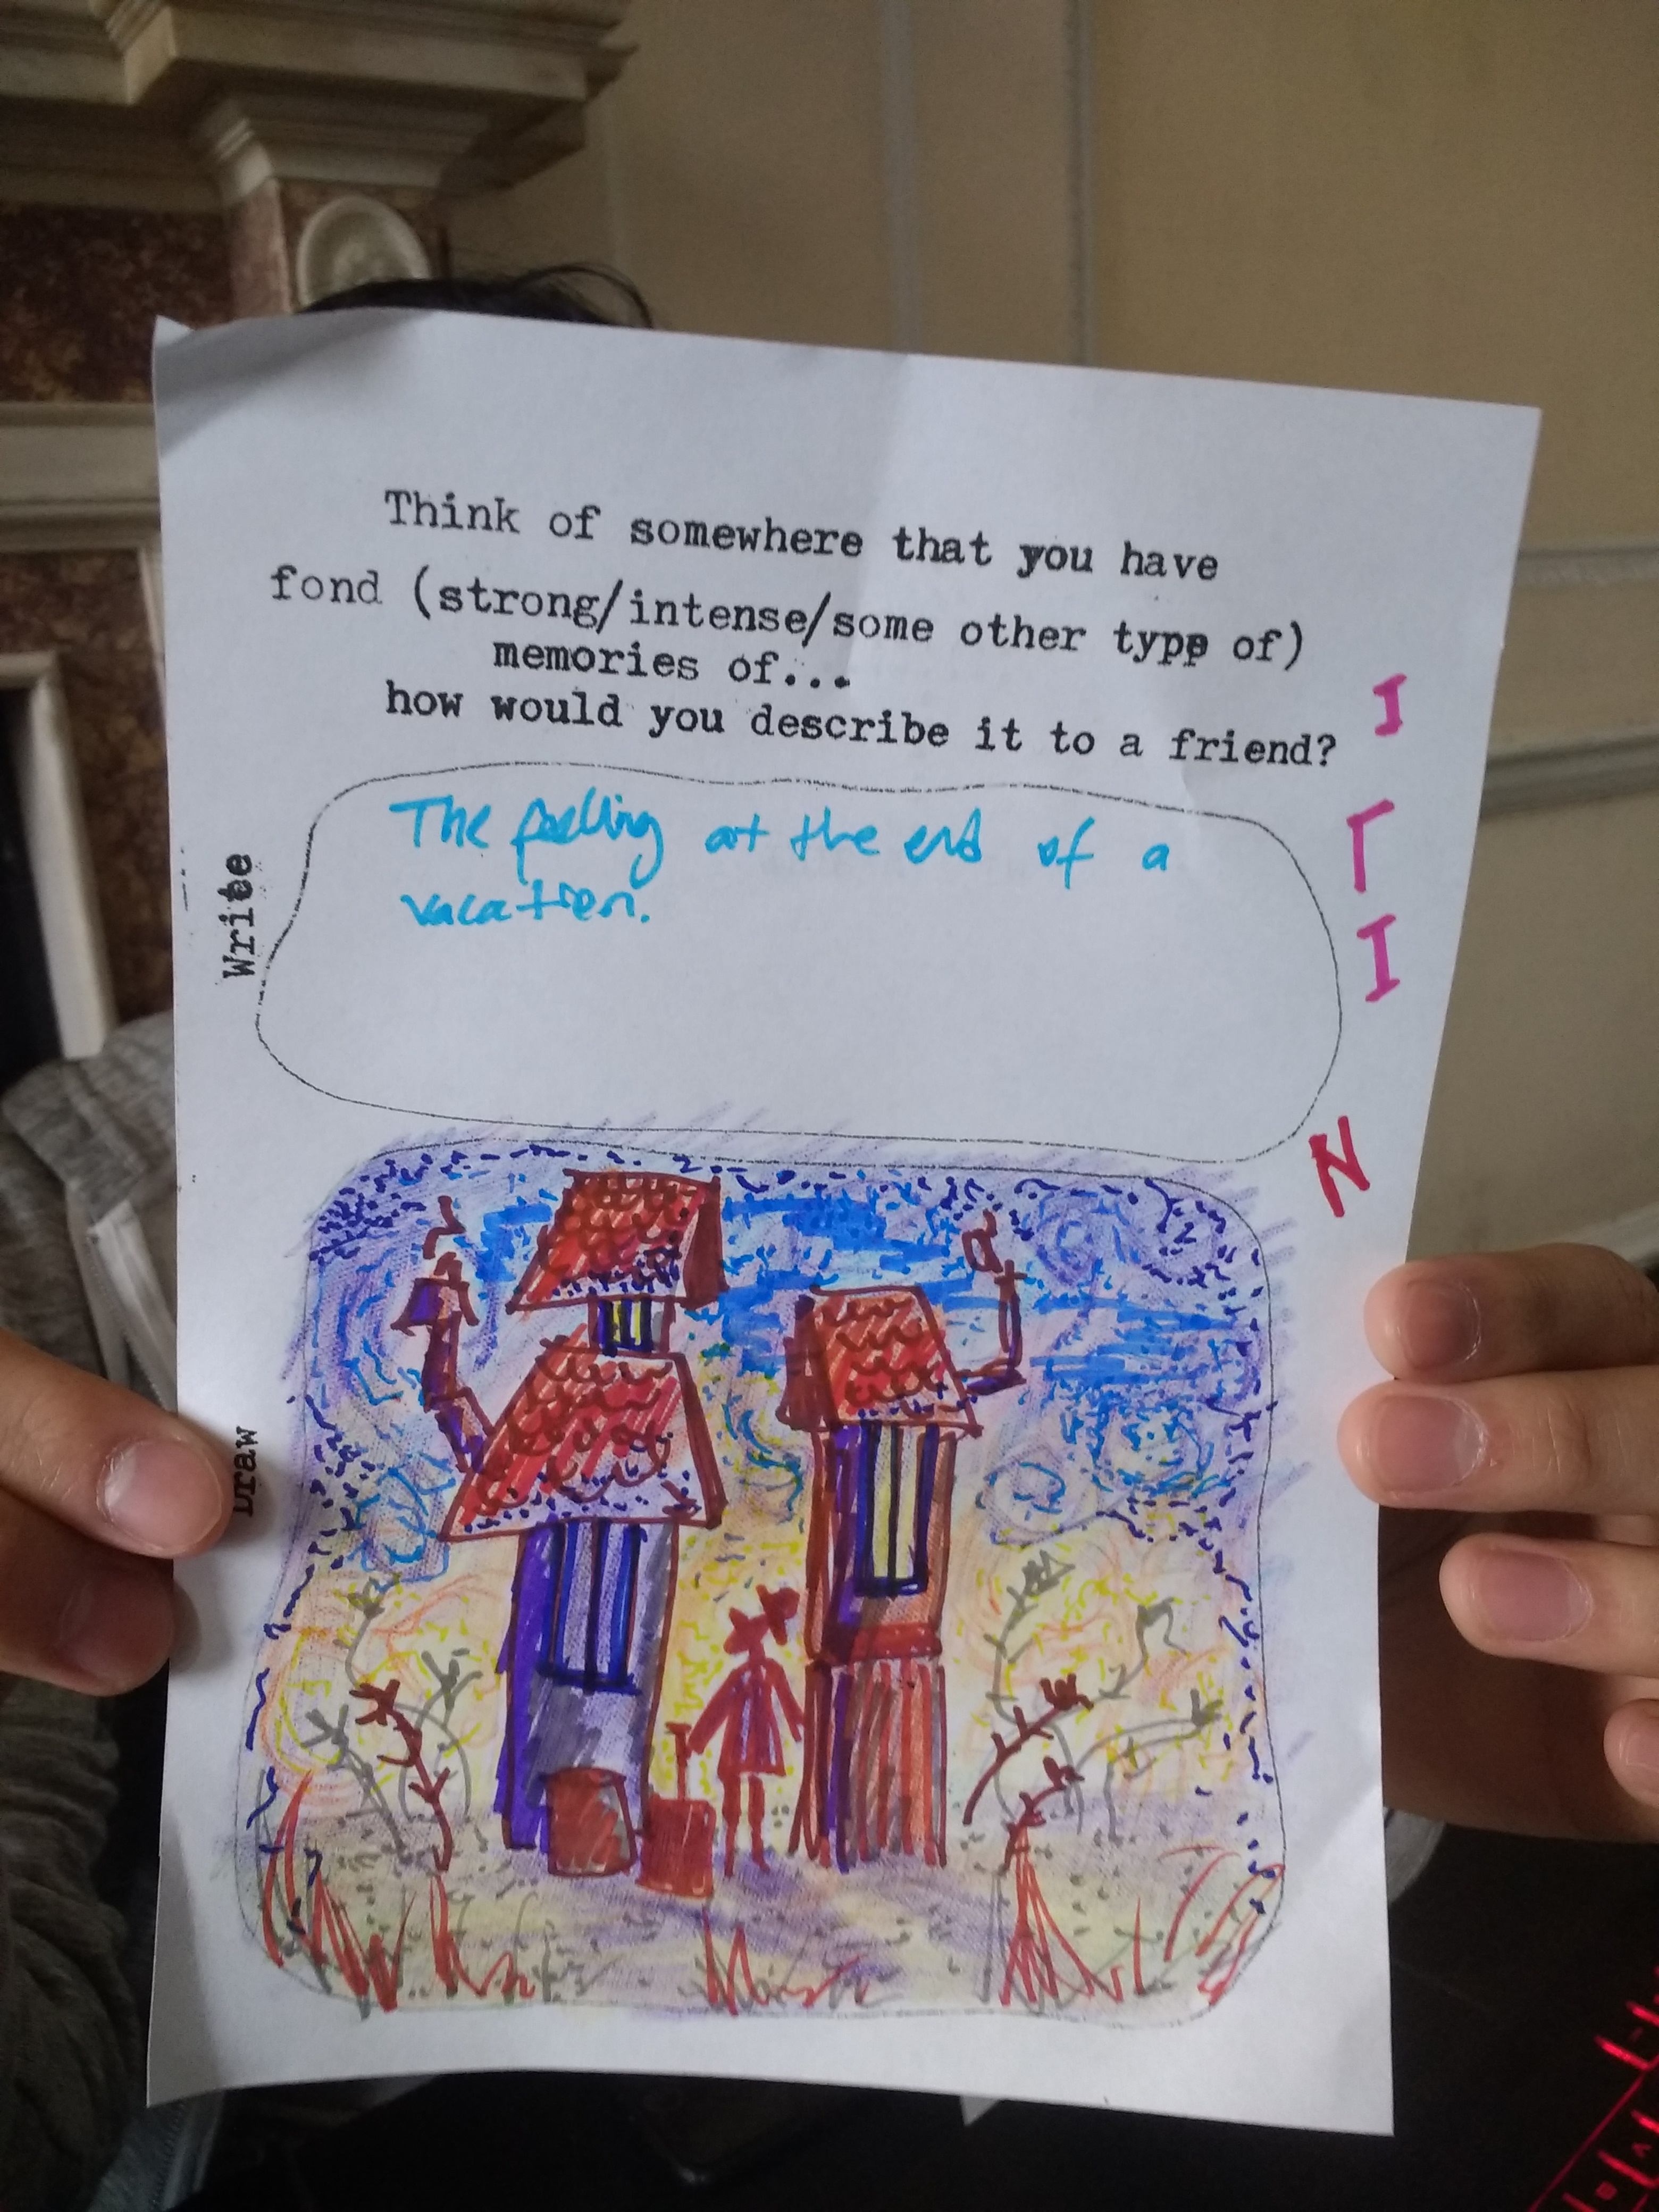 Think of somewhere that you have
fond (strong/intense/some other type of)
memories of...
how would you describe it to a friend?
Write
The feeling at the end of a
vacation.
Draw
I
Γ
I
N